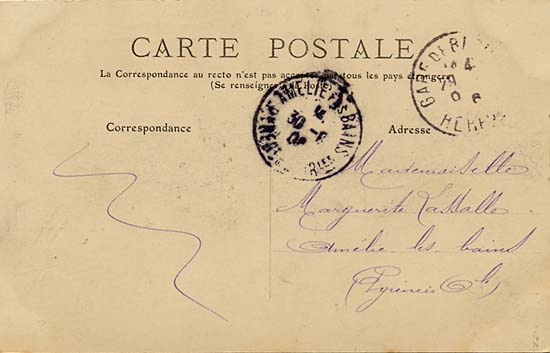 CARTE POSTALE
La Correspondance au recto n'est pas acceptée par tous les pays étrangers
(Se renseigner à la Poste)
Correspondance
Adresse
AMELIE-LES-BAINS
GARE DE
Mademoiselle
Marguerite Lassalle
Amélie les bains
(Pyrénéis Ol)